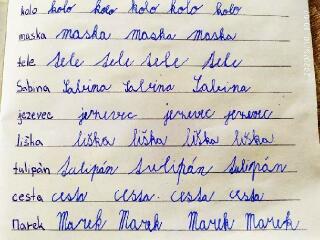 kolo kolo kolo kolo kolo kolo
maska maska maska maska
tele tele tele tele tele
Sabina Sabina Sabina Sabina
jezevec jezevec jezevec jezevec
liška liška liška liška liška
tulipán tulipán tulipán tulipán
cesta cesta cesta. cesta cesta
Marek Marek Marek Marek Marek